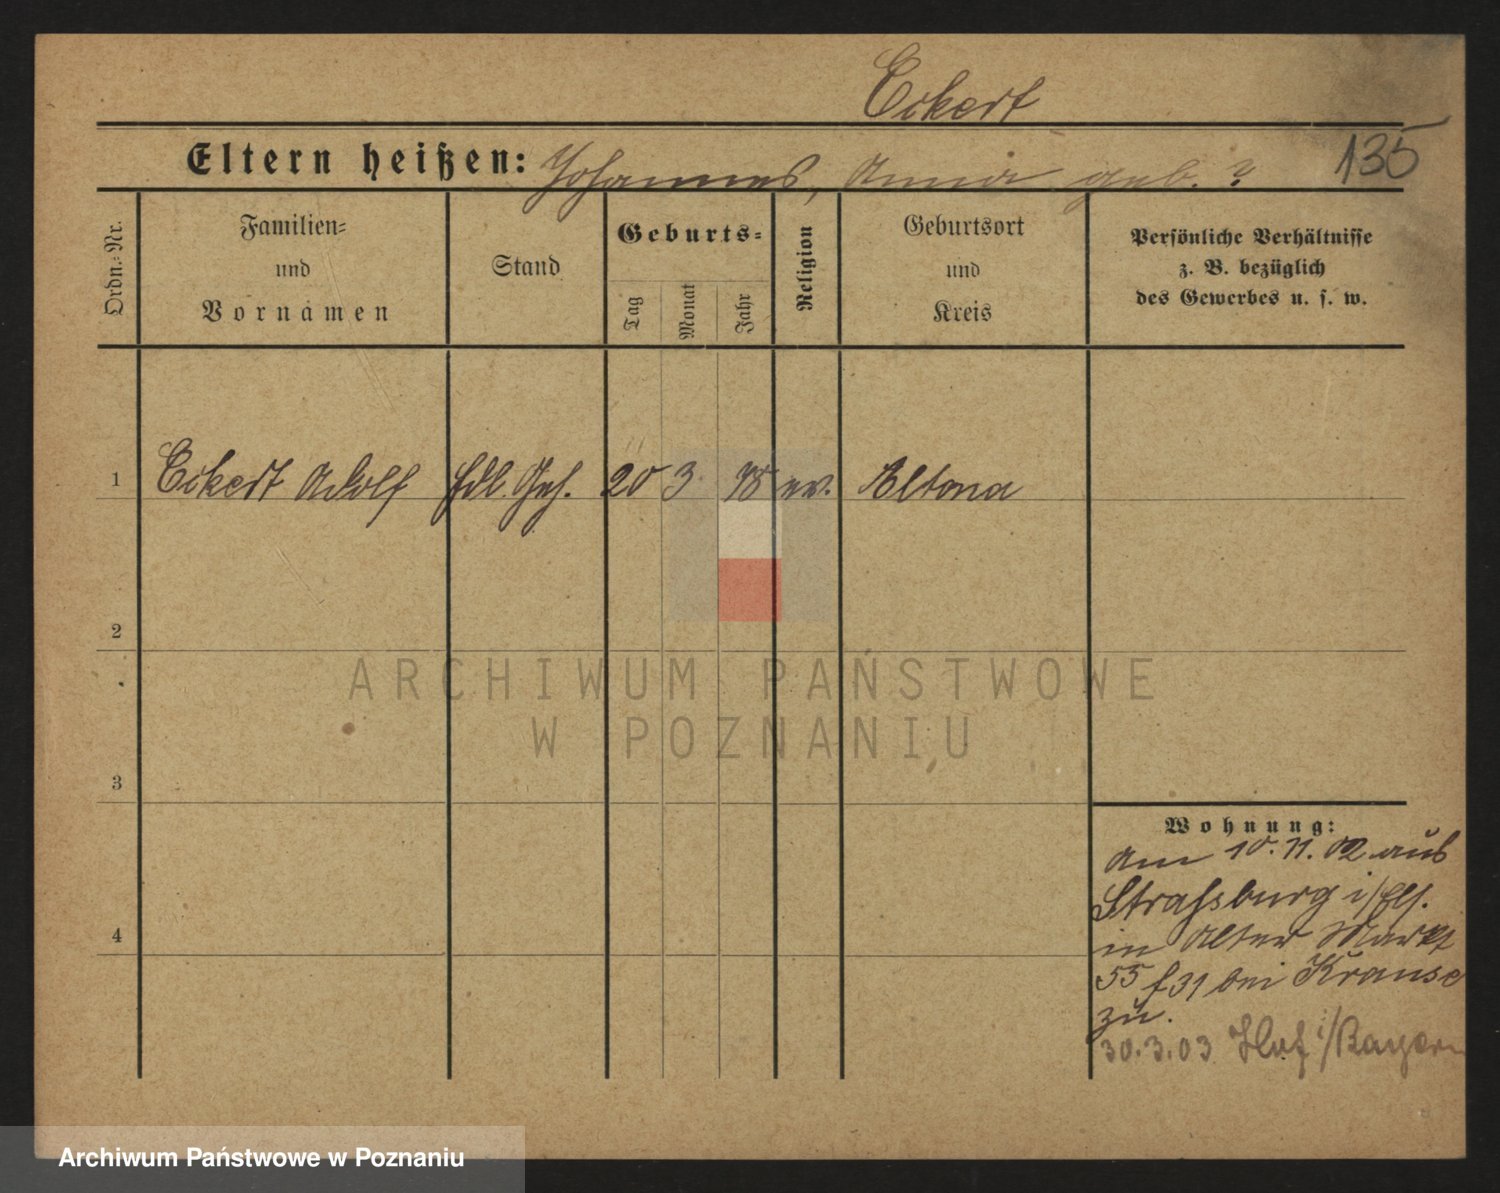 Eckert
135
Eltern heißen: Johannes, Anna geb. ?
Ordn.=Nr.
Familien=
und
Vornamen
Stand
Geburts=
Tag
Monat
Jahr
Religion
Geburtsort
und
Kreis
Persönliche Verhältnisse
z. B. bezüglich
des Gewerbes u. s. w.
1 Eckert Adolf Hdl. Geh. 20 3. 78 ev. Altona
2
ARCHIWUM PAŃSTWOWE
W POZNANIU
3
Wohnung:
Am 10.11.02 aus
Strassburg i/Els.
4
in Alter Markt
55 f 31 bei Krause
zu.
30.3.03 Hof i/Bayern
Archiwum Państwowe w Poznaniu